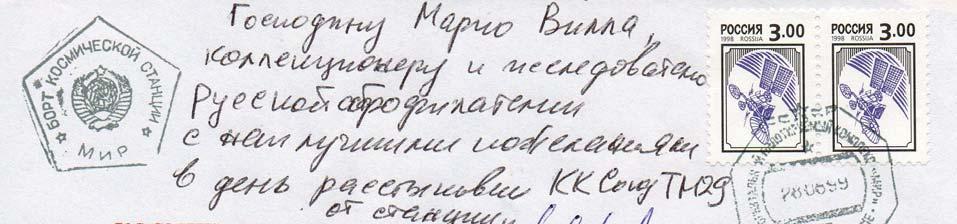 БОРТ КОСМИЧЕСКОЙ СТАНЦИИ
МИР
Господину Марио Вилла,
коллекционеру и исследователю
Русской астрофилателии
с наилучшими пожеланиями
в день расстыковки КК Союз ТМ29
от станции
РОССИЯ 3.00
1998 ROSSIJA
РОССИЯ 3.00
1998 ROSSIJA
КОМПЛЕКС «МИР»
280899